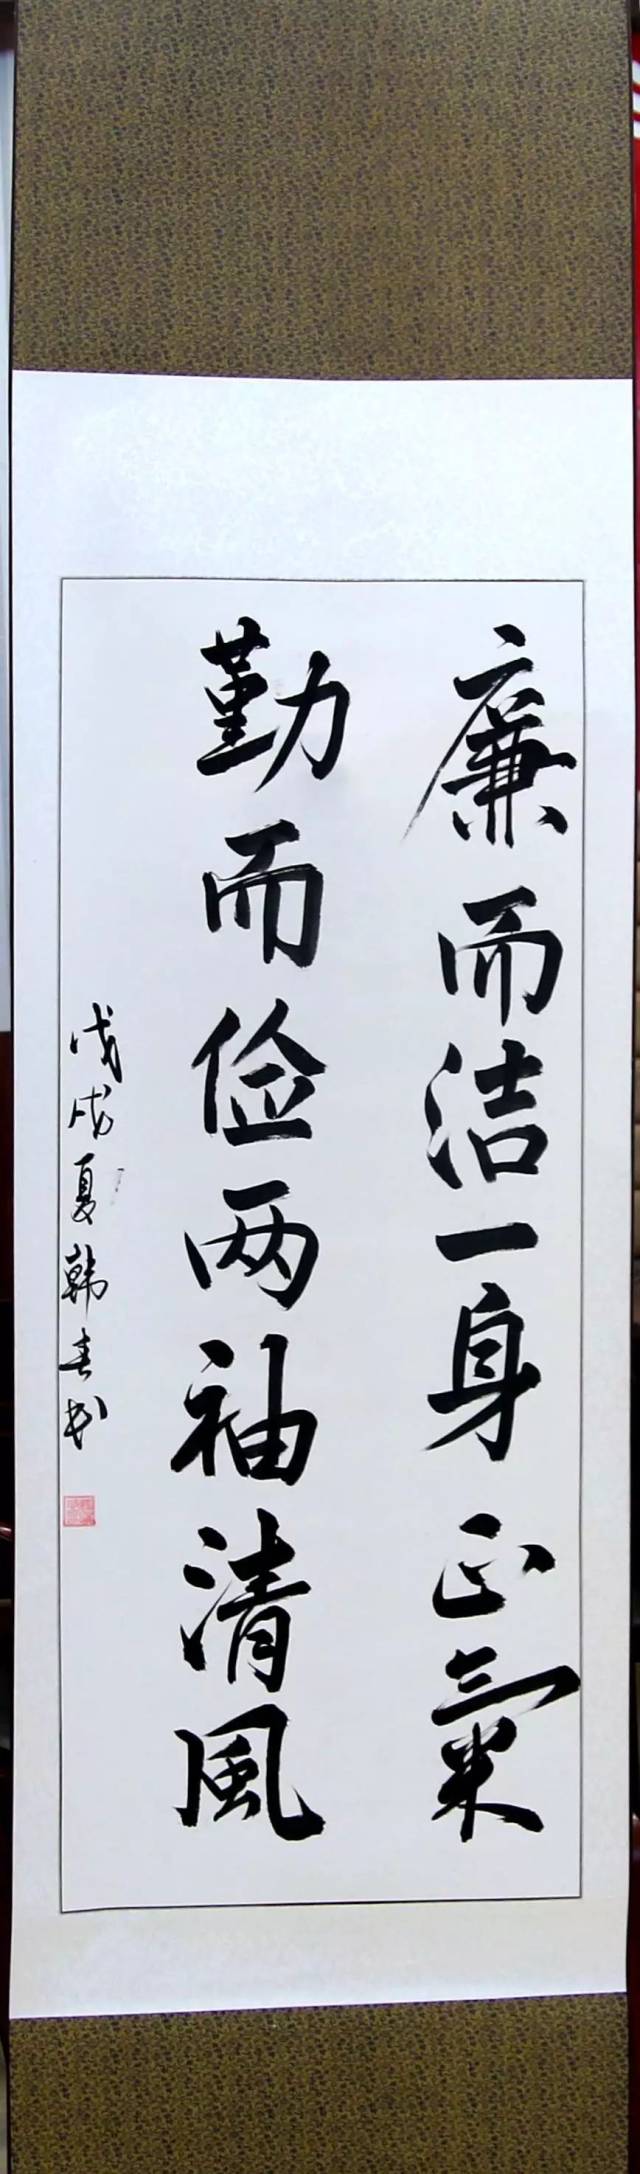 廉而洁一身正氣
勤而俭两袖清風
戊戌夏韩春书